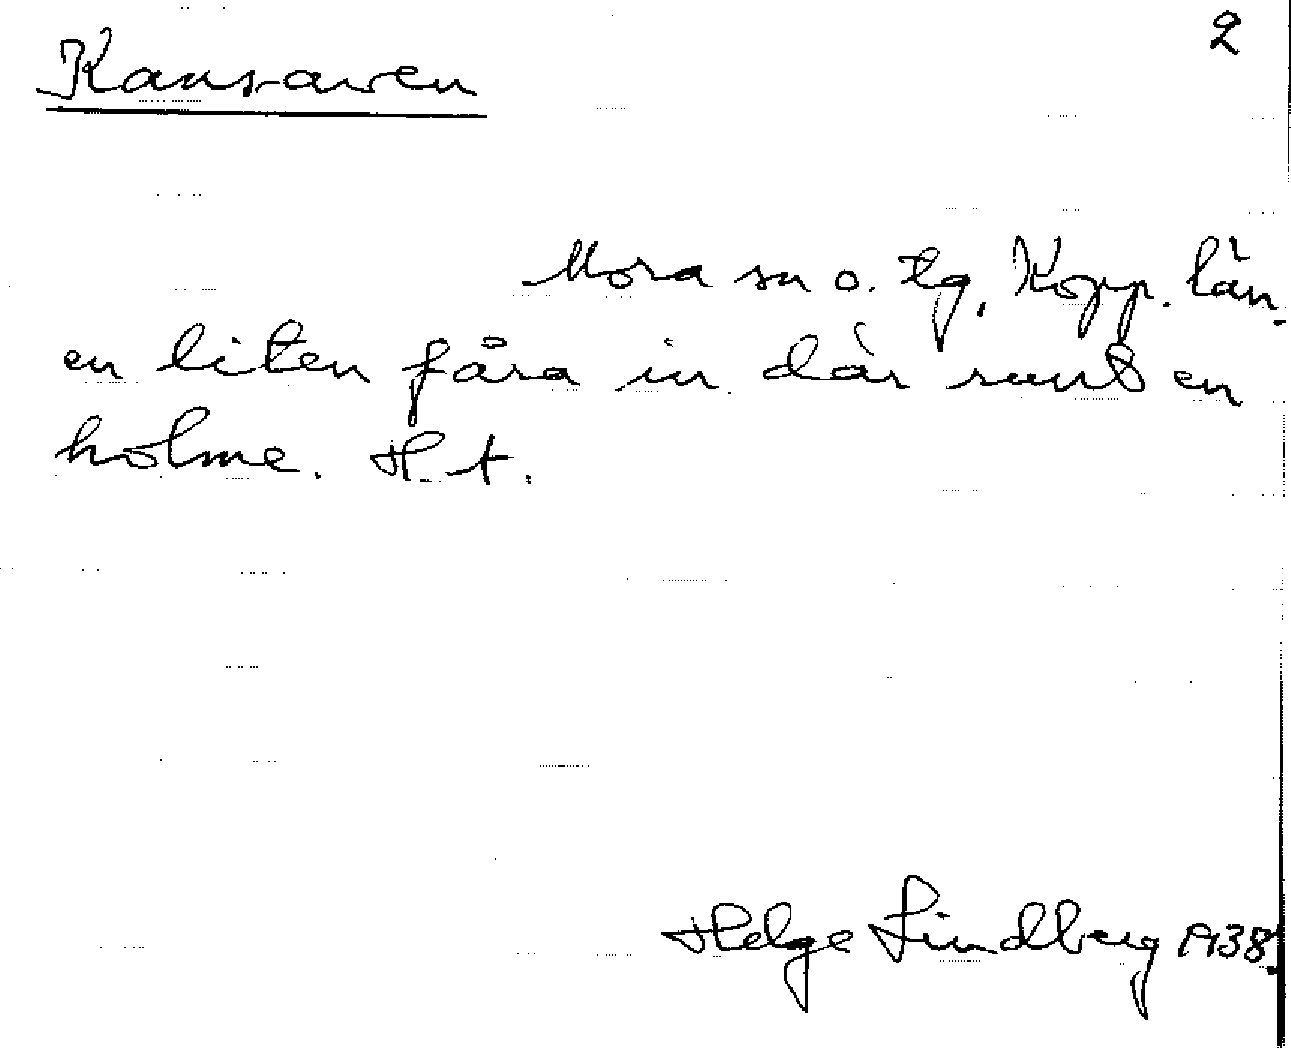 2
Mora sn o. tg, Kopp. län.
en liten fåra in där runt en
holme. H. t.
Helge Lindberg 1938.